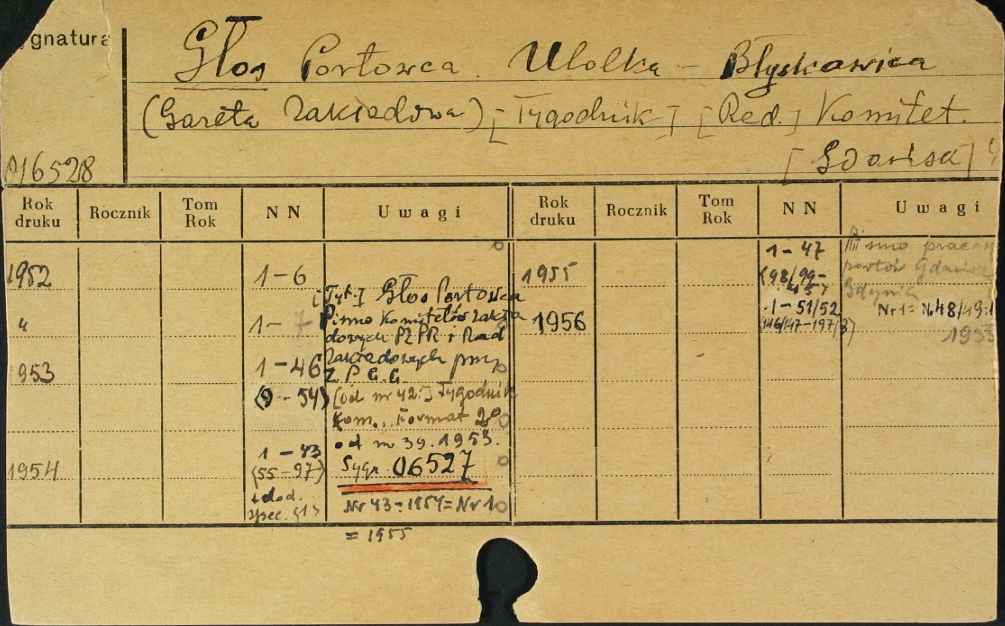 ygnatura
Głos Portowca. Ulotka - Błyskawica
(Gazeta Zakładowa) [Tygodnik] [Red.] Komitet.
[Gdańsk]
P/6528
Rok druku Rocznik Tom Rok NN Uwagi Rok druku Rocznik Tom Rok NN Uwagi
1952 1-6
[Tyt.] Głos Portowca
" 1-7 Pismo Komitetów Zakła
dowych PZPR i Rad
Zakładowych przy
Z P G G
953 1-46
(9-54) [od nr 42:] Tygodnik
Kom.. Format 2°
od nr 39.1953.
1954 1-43
(55-97)
+ dod.
spec. Sygn. 06527
Nr 43-1954=Nr 1
= 1955
1955 1-47
(98/99-
457
Pismo pracow
portów Gdańsk
Gdynia
1956 1-51/52
Nr 1 = N48/49.
1955